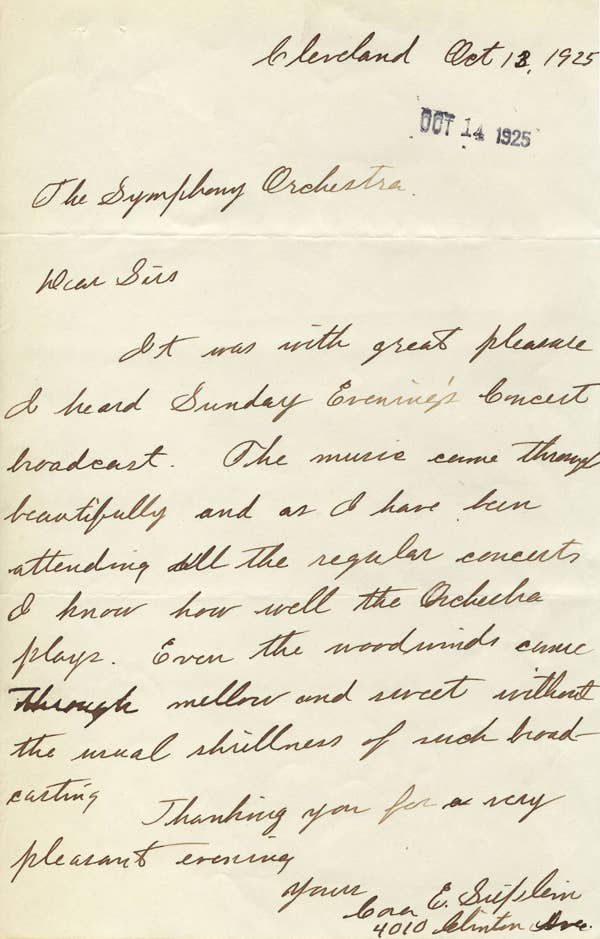 Cleveland Oct 13, 1925
OCT 14 1925
The Symphony Orchestra.
Dear Sirs
It was with great pleasure
I heard Sunday Evening's Concert
broadcast. The music came through
beautifully and as I have been
attending all the regular concerts
I know how well the Orchestra
plays. Even the woodwinds came
through mellow and sweet without
the usual shrillness of such broad-
casting
Thanking you for a very
pleasant evening
Yours
Cora E.
4010 Clinton Ave.